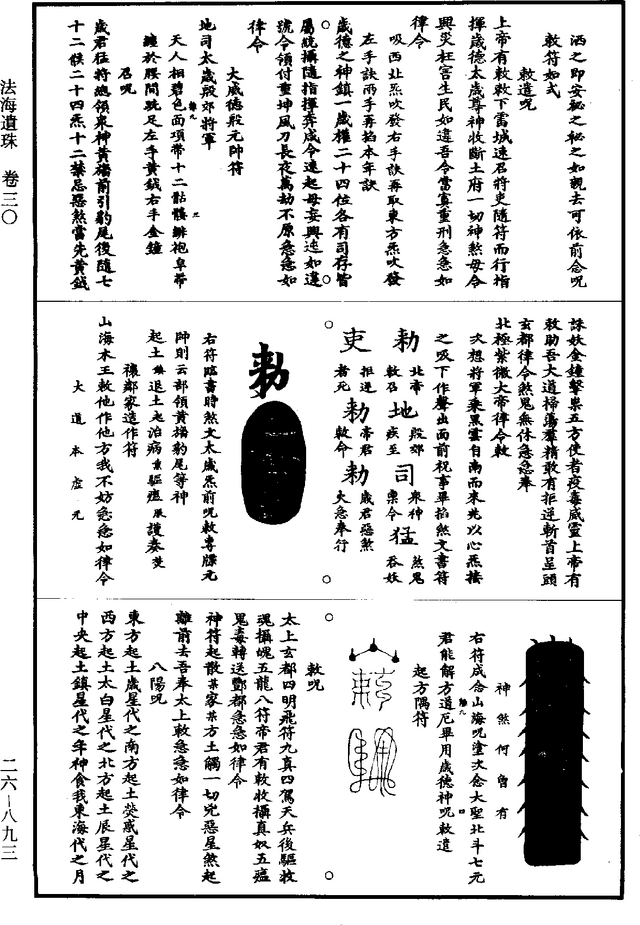 洒之即安秘之秘之如親去可依前念呪
敕符如式
敕遣呪
上帝有敕敕下雷城速召將吏隨符而行指
揮歲德太歲尊神收斷土府一切神煞毋令
興災枉害生民如違吾令當寘重刑急急如
律令
吸西北炁吹發右手訣再取東方炁吹發
左手訣兩手再掐本年訣
歲德之神鎮一歲權二十四位各有司存皆
屬統攝隨指揮奔咸令速起毋妄興迍如違
號令領付重坤風刀長夜萬劫不原急急如
律令
大威德殷元帥符
地司太歲殷郊將軍
天人相碧色面項帶十二骷髏緋抱皁帶
纏於腰間跣足左手黃鉞右手金鐘
召呪
歲君猛將總領眾神黃旛前引豹尾後隨七
十二候二十四炁十二禁忌惡煞當先黃鉞
誅妖金鐘擊祟五方使者疫毒威靈上帝有
敕助吾大道掃蕩羣精敢有拒逆斬首呈頭
玄都律令煞鬼無休急急奉
北極紫微大帝律令敕
次想將軍乘黑雲自南而來先以心炁接
之吸下作聲出面前祝事畢掐煞文書符
勅 北帝敕召 地 殷郊疾至 司 眾神稟令 猛 煞鬼吞妖
吏 拒逆者死 勅 帝君敕令 勅 歲君惡煞火急奉行
勅
右符臨書時煞文太歲炁前呪敕專牒元
帥則云部領黃旛豹尾等神
起土 退土 治病 驅瘟 護奏
禳鄰家造作符
山海木王敕他作他方我不妨急急如律令
大道本虛元
神煞何曾有
右符成念山海呪塗次念大聖北斗七元
君能解方道厄畢用歲德神呪敕遣
起方隅符
敕呪
太上玄都四明飛符九真四駕天兵後驅收
魂攝魄五龍八符帝君有敕收攝真奴五瘟
鬼毒轉送酆都急急如律令
神符起散某家某方土觸一切兇惡星煞起
離前去吾奉太上敕急急如律令
八陽呪
東方起土歲星代之南方起土熒惑星代之
西方起土太白星代之北方起土辰星代之
中央起土鎮星代之年神食我東海代之月
法海遺珠 卷三〇
二六—八九三